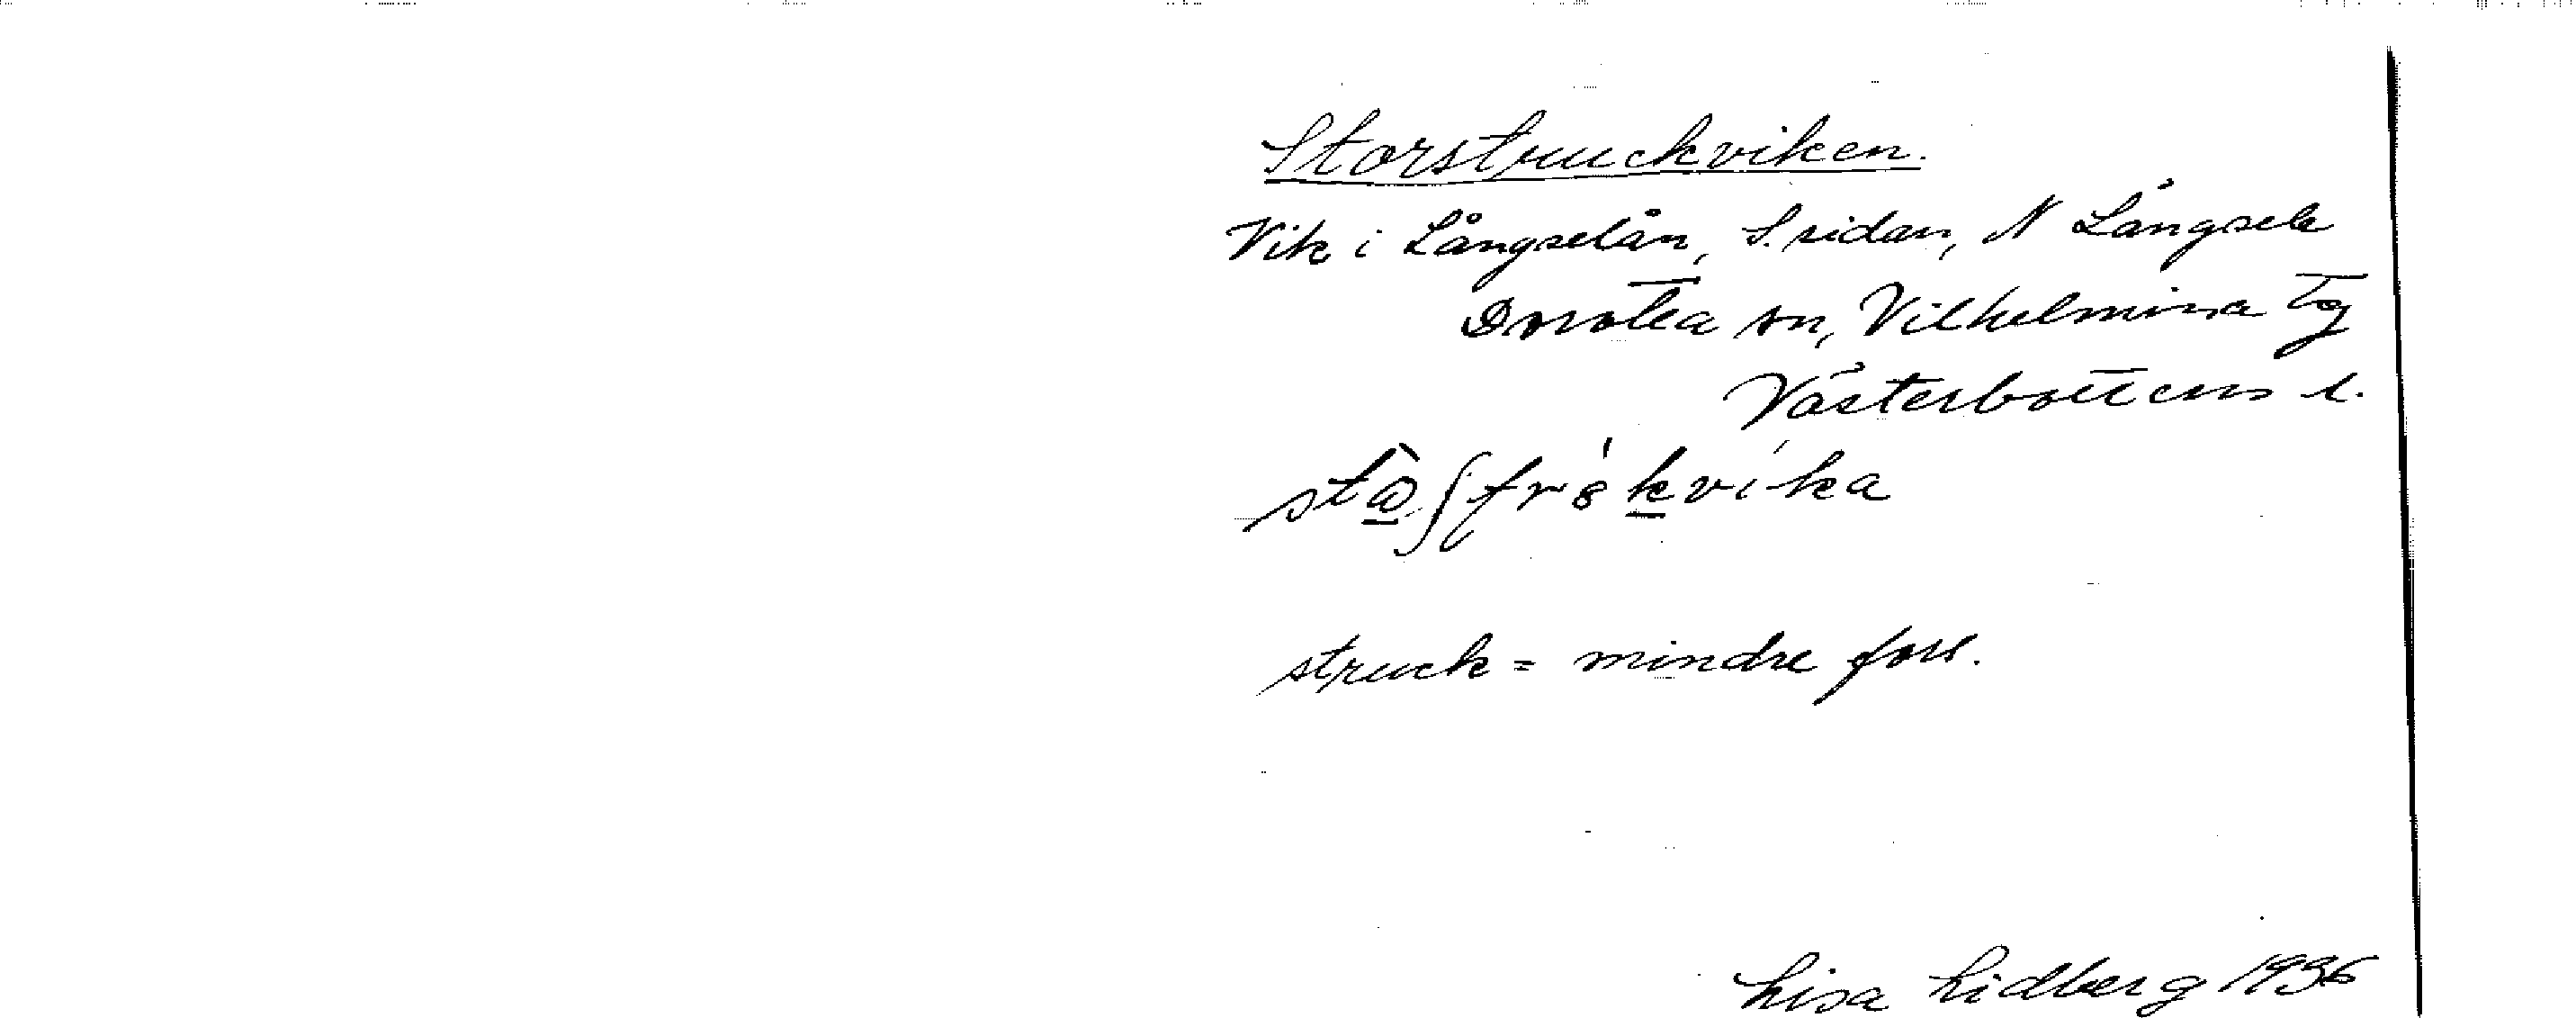 Storstruckviken.
Vik i Långselån, S. sidan, N Långsele
Dorotea sn, Vilhelmina tg
Västerbottens l.
struck = mindre fors.
Lisa Lidberg 1936